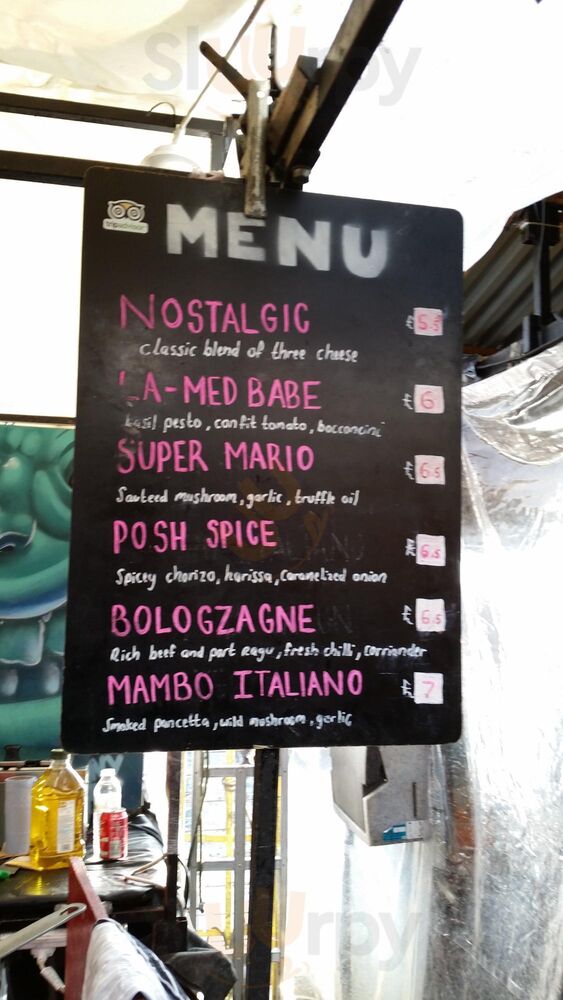 Slurpy
tripadvisor
MENU
NOSTALGIC £ 5.5
classic blend of three cheese
LA-MED BABE £ 6
basil pesto, confit tomato, bocconcini
SUPER MARIO £ 6.5
Sauteed mushroom, garlic, truffle oil
POSH SPICE £ 6.5
Spicey chorizo, harissa, caramelized onion
BOLOGZAGNE £ 6.5
Rich beef and port ragu, fresh chilli, corriander
MAMBO ITALIANO £ 7
Smoked pancetta, wild mushroom, garlic
NY
Slurpy